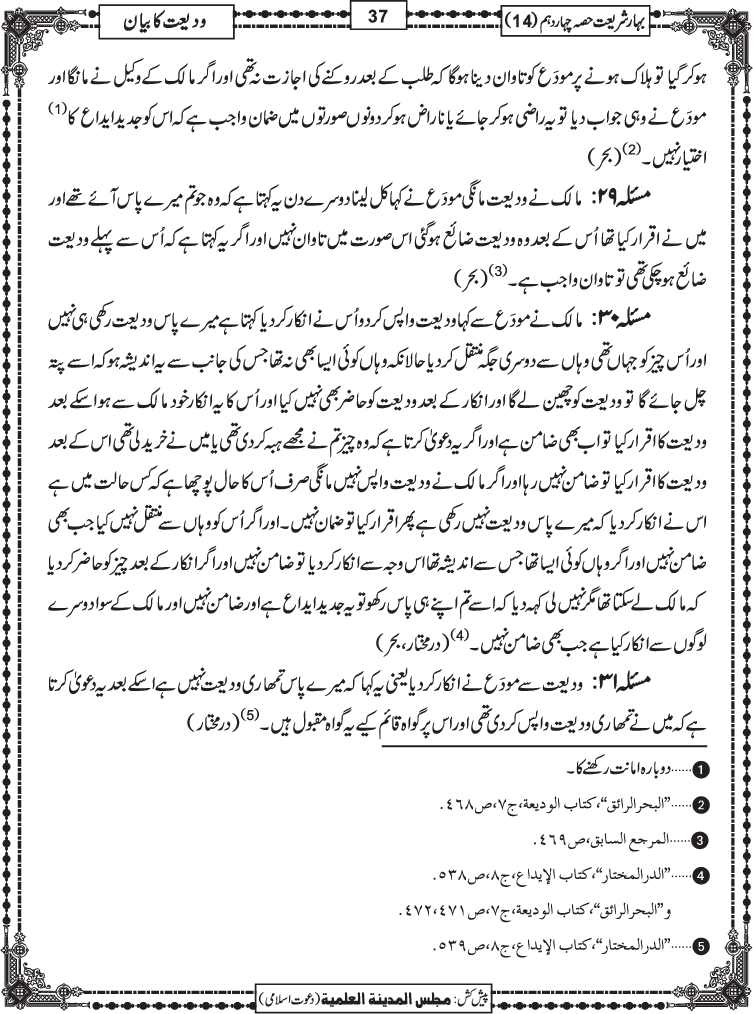 بہارِ شریعت حصہ چہاردہم (14)
37
ودیعت کا بیان
ہوکر گیا تو ہلاک ہونے پر مودَع کو تاوان دینا ہوگا کہ طلب کے بعد روکنے کی اجازت نہ تھی اور اگر مالک کے وکیل نے مانگا اور
مودَع نے وہی جواب دیا تو یہ راضی ہوکر جائے یا ناراض ہوکر دونوں صورتوں میں ضمان واجب ہے کہ اس کو جدید ایداع کا (1)
اختیار نہیں۔(2) (بحر)
مسئلہ ۲۹: مالک نے ودیعت مانگی مودَع نے کہا کل لینا دوسرے دن یہ کہتا ہے کہ وہ جو تم میرے پاس آئے تھے اور
میں نے اقرار کیا تھا اُس کے بعد وہ ودیعت ضائع ہوگئی اس صورت میں تاوان نہیں اور اگر یہ کہتا ہے کہ اُس سے پہلے ودیعت
ضائع ہوچکی تھی تو تاوان واجب ہے۔(3) (بحر)
مسئلہ ۳۰: مالک نے مودَع سے کہا ودیعت واپس کردو اُس نے انکار کردیا کہتا ہے میرے پاس ودیعت رکھی ہی نہیں
اور اُس چیز کو جہاں تھی وہاں سے دوسری جگہ منتقل کردیا حالانکہ وہاں کوئی ایسا بھی نہ تھا جس کی جانب سے یہ اندیشہ ہو کہ اسے پتہ
چل جائے گا تو ودیعت کو چھین لے گا اور انکار کے بعد ودیعت کو حاضر بھی نہیں کیا اور اُس کا یہ انکار خود مالک سے ہو اسکے بعد
ودیعت کا اقرار کیا تو اب بھی ضامن ہے اور اگر یہ دعویٰ کرتا ہے کہ وہ چیز تم نے مجھے ہبہ کردی تھی یا میں نے خرید لی تھی اس کے بعد
ودیعت کا اقرار کیا تو ضامن نہیں رہا اور اگر مالک نے ودیعت واپس نہیں مانگی صرف اُس کا حال پوچھا ہے کہ کس حالت میں ہے
اس نے انکار کردیا کہ میرے پاس ودیعت نہیں رکھی ہے پھر اقرار کیا تو ضمان نہیں۔ اور اگر اُس کو وہاں سے منتقل نہیں کیا جب بھی
ضامن نہیں اور اگر وہاں کوئی ایسا تھا جس سے اندیشہ تھا اس وجہ سے انکار کردیا تو ضامن نہیں اور اگر انکار کے بعد چیز کو حاضر کردیا
کہ مالک لے سکتا تھا مگر نہیں لی کہہ دیا کہ اسے تم اپنے ہی پاس رکھو تو یہ جدید ایداع ہے اور ضامن نہیں اور مالک کے سوا دوسرے
لوگوں سے انکار کیا ہے جب بھی ضامن نہیں۔(4) (درمختار، بحر)
مسئلہ ۳۱: ودیعت سے مودَع نے انکار کردیا یعنی یہ کہا کہ میرے پاس تمھاری ودیعت نہیں ہے اسکے بعد یہ دعویٰ کرتا
ہے کہ میں نے تمھاری ودیعت واپس کردی تھی اور اس پر گواہ قائم کیے یہ گواہ مقبول ہیں۔(5) (درمختار)
1......دوبارہ امانت رکھنے کا۔
2......"البحرالرائق"،کتاب الودیعة،ج۷،ص۴۶۸.
3......المرجع السابق،ص۴۶۹.
4......"الدرالمختار"،کتاب الإیداع،ج۸،ص۵۳۸.
و"البحرالرائق"،کتاب الودیعة،ج۷،ص۴۷۱،۴۷۲.
5......"الدرالمختار"،کتاب الإیداع،ج۸،ص۵۳۹.
پیش کش: مجلس المدینة العلمیة (دعوت اسلامی)